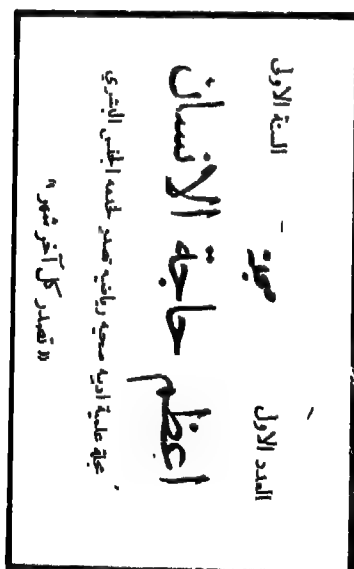 السنة الاولى العدد الاول
مجلة
اعظم حاجة الانسان
مجلة علمية ادبية صحية رياضية تصدر لخدمة الجنس البشري
« تصدر كل آخر شهر »